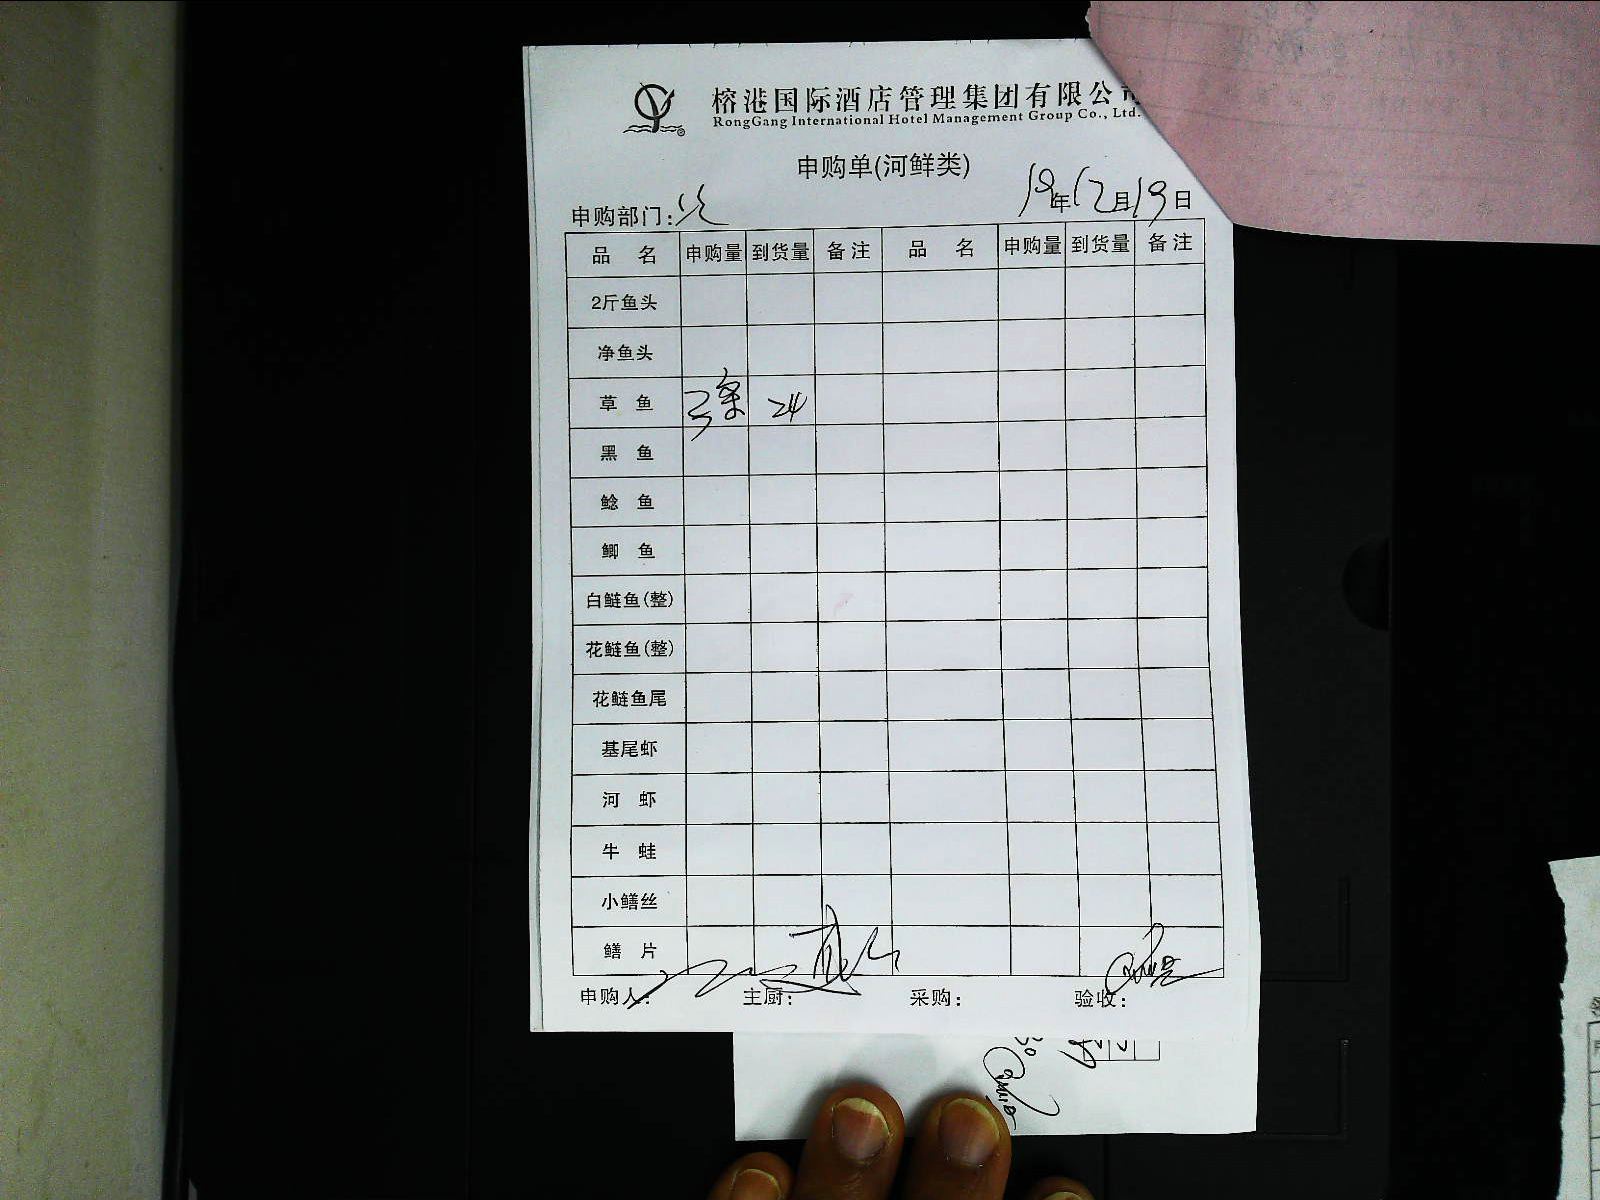 榕港国际酒店管理集团有限公司
RongGang International Hotel Management Group Co., Ltd.
申购单(河鲜类)
申购部门: 19年12月19日
品 名 申购量 到货量 备注 品 名 申购量 到货量 备注
2斤鱼头
净鱼头
草 鱼 3条 24
黑 鱼
鲶 鱼
鲫 鱼
白鲢鱼(整)
花鲢鱼(整)
花鲢鱼尾
基尾虾
河 虾
牛 蛙
小鳝丝
鳝 片
申购人: 主厨: 采购: 验收:
30